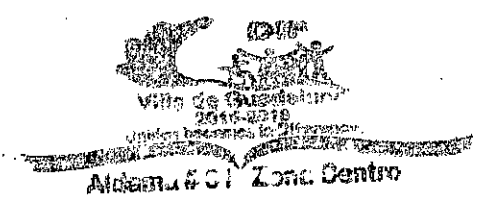 DIF
Villa de Guadalupe
2016-2018
Unidos hacemos la diferencia
Aldama # Zona Centro